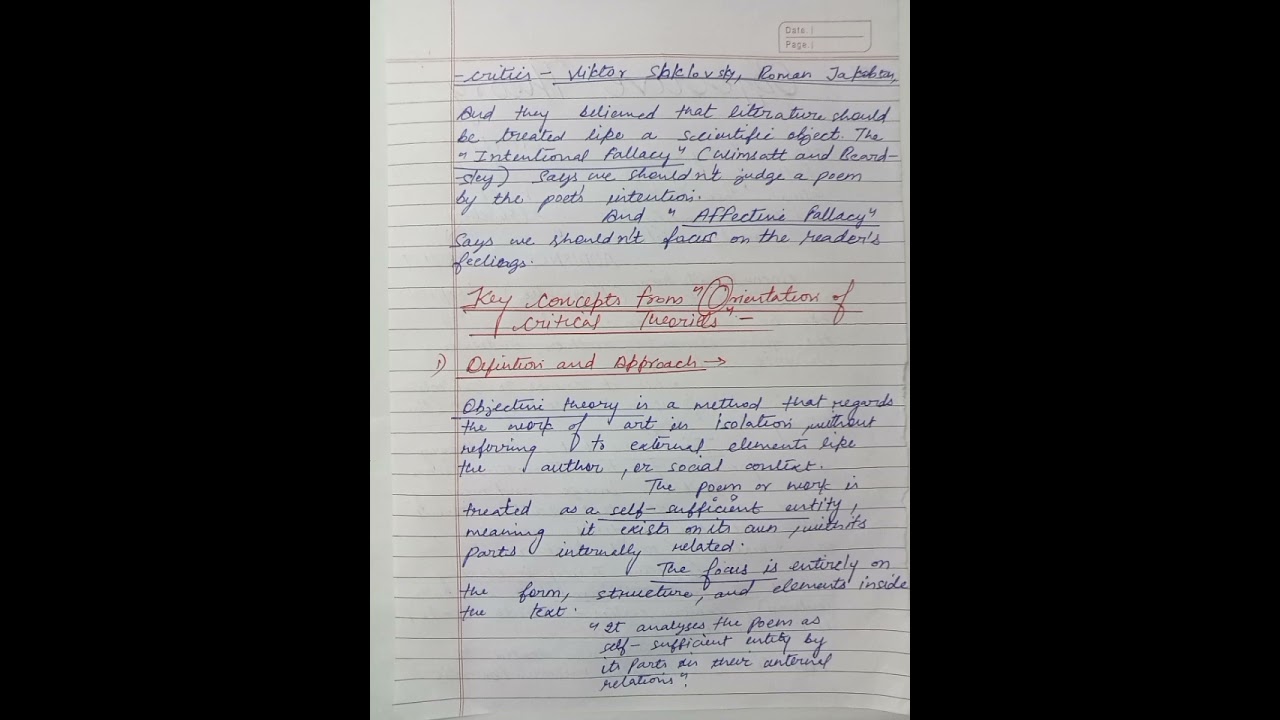 Date.
Page.
- critics - Viktor Shklovsky, Roman Jakobson,
And they believed that literature should
be treated like a scientific object. The
"Intentional Fallacy" (Wimsatt and Beard-
sley) says we shouldn't judge a poem
by the poet's intention.
And "Affective Fallacy"
says we shouldn't focus on the reader's
feelings.
Key concepts from "Orientation of
critical Theories" -
1) Defintion and Approach →
Objective theory is a method that regards
the work of art in isolation, without
referring to external elements like
the author, or social context.
The poem or work is
treated as a self-sufficient entity,
meaning it exists on its own, with its
parts internally related.
The focus is entirely on
the form, structure, and elements inside
the text.
"It analyses the poem as
self-sufficient entity by
its parts in their internal
relations".